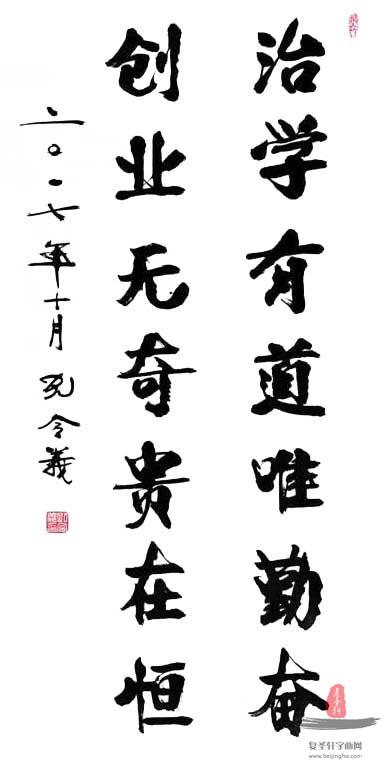 治学有道唯勤奋
创业无奇贵在恒
二〇一七年十月孔令義
复圣轩字画网
www.beijingfsx.com